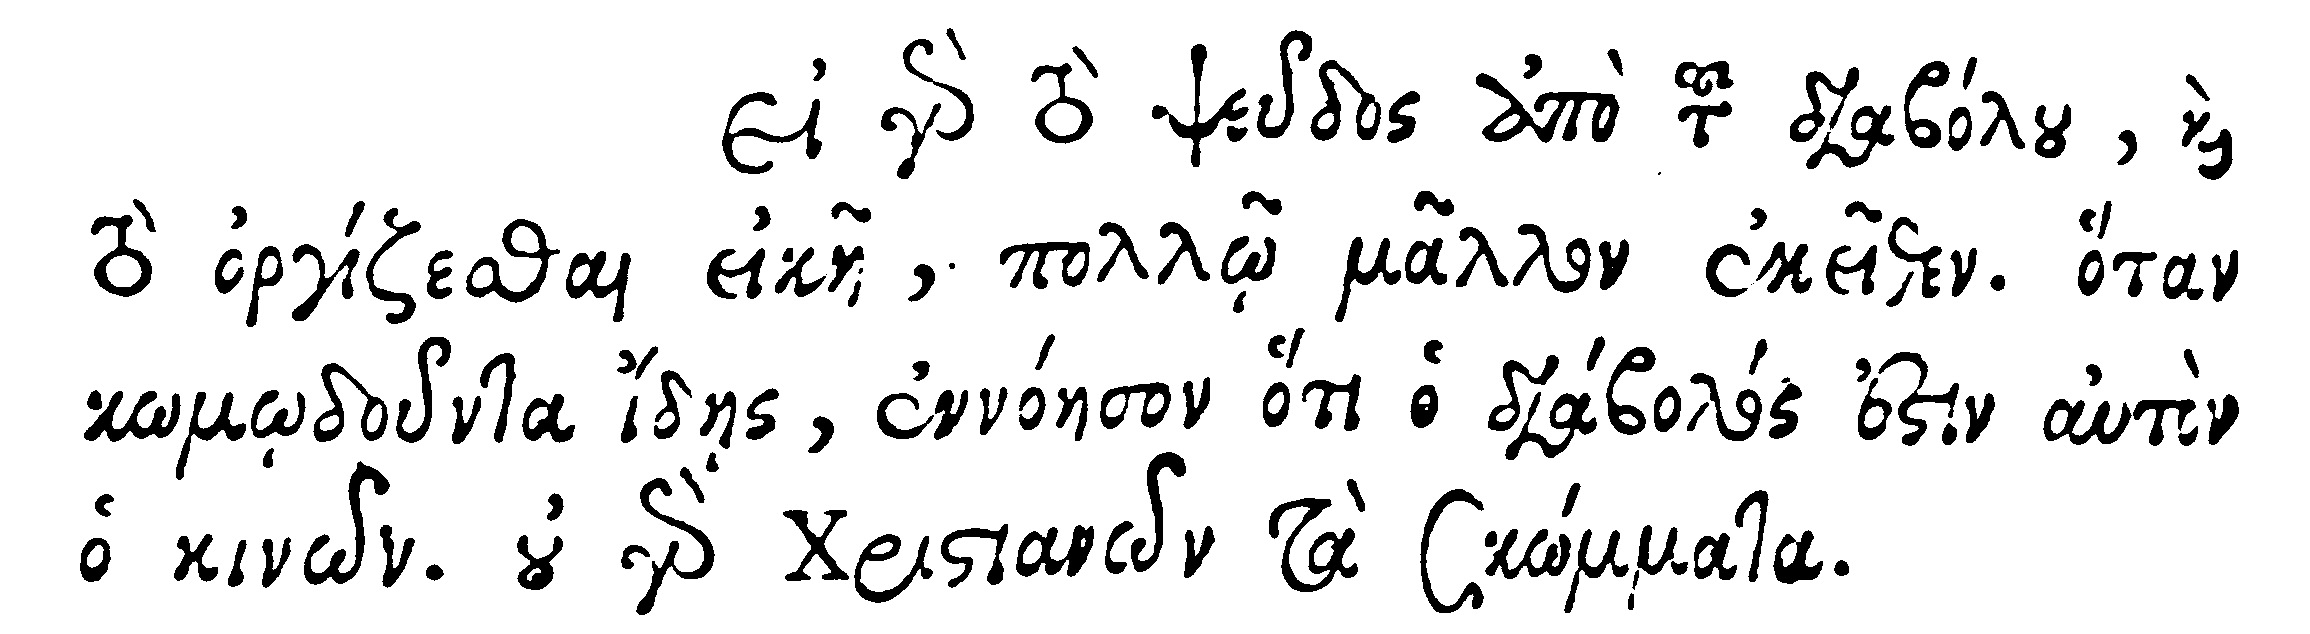 εἰ γὰρ τὸ ψεῦδος ἀπὸ τοῦ διαβόλου, καὶ
τὸ ὀργίζεσθαι εἰκῆ, πολλῷ μᾶλλον ἐκεῖθεν. ὅταν
κωμῳδοῦντα ἴδῃς, ἐννόησον ὅτι ὁ διάβολός ἐστιν αὐτὸν
ὁ κινῶν. οὐ γὰρ Χριστιανῶν τὰ σκώμματα.